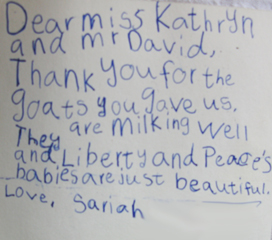 Dear miss Kathryn
and mr David,
Thank you for the
goats you gave us.
They are milking well
and Liberty and Peace's
babies are just beautiful.
Love, Sariah